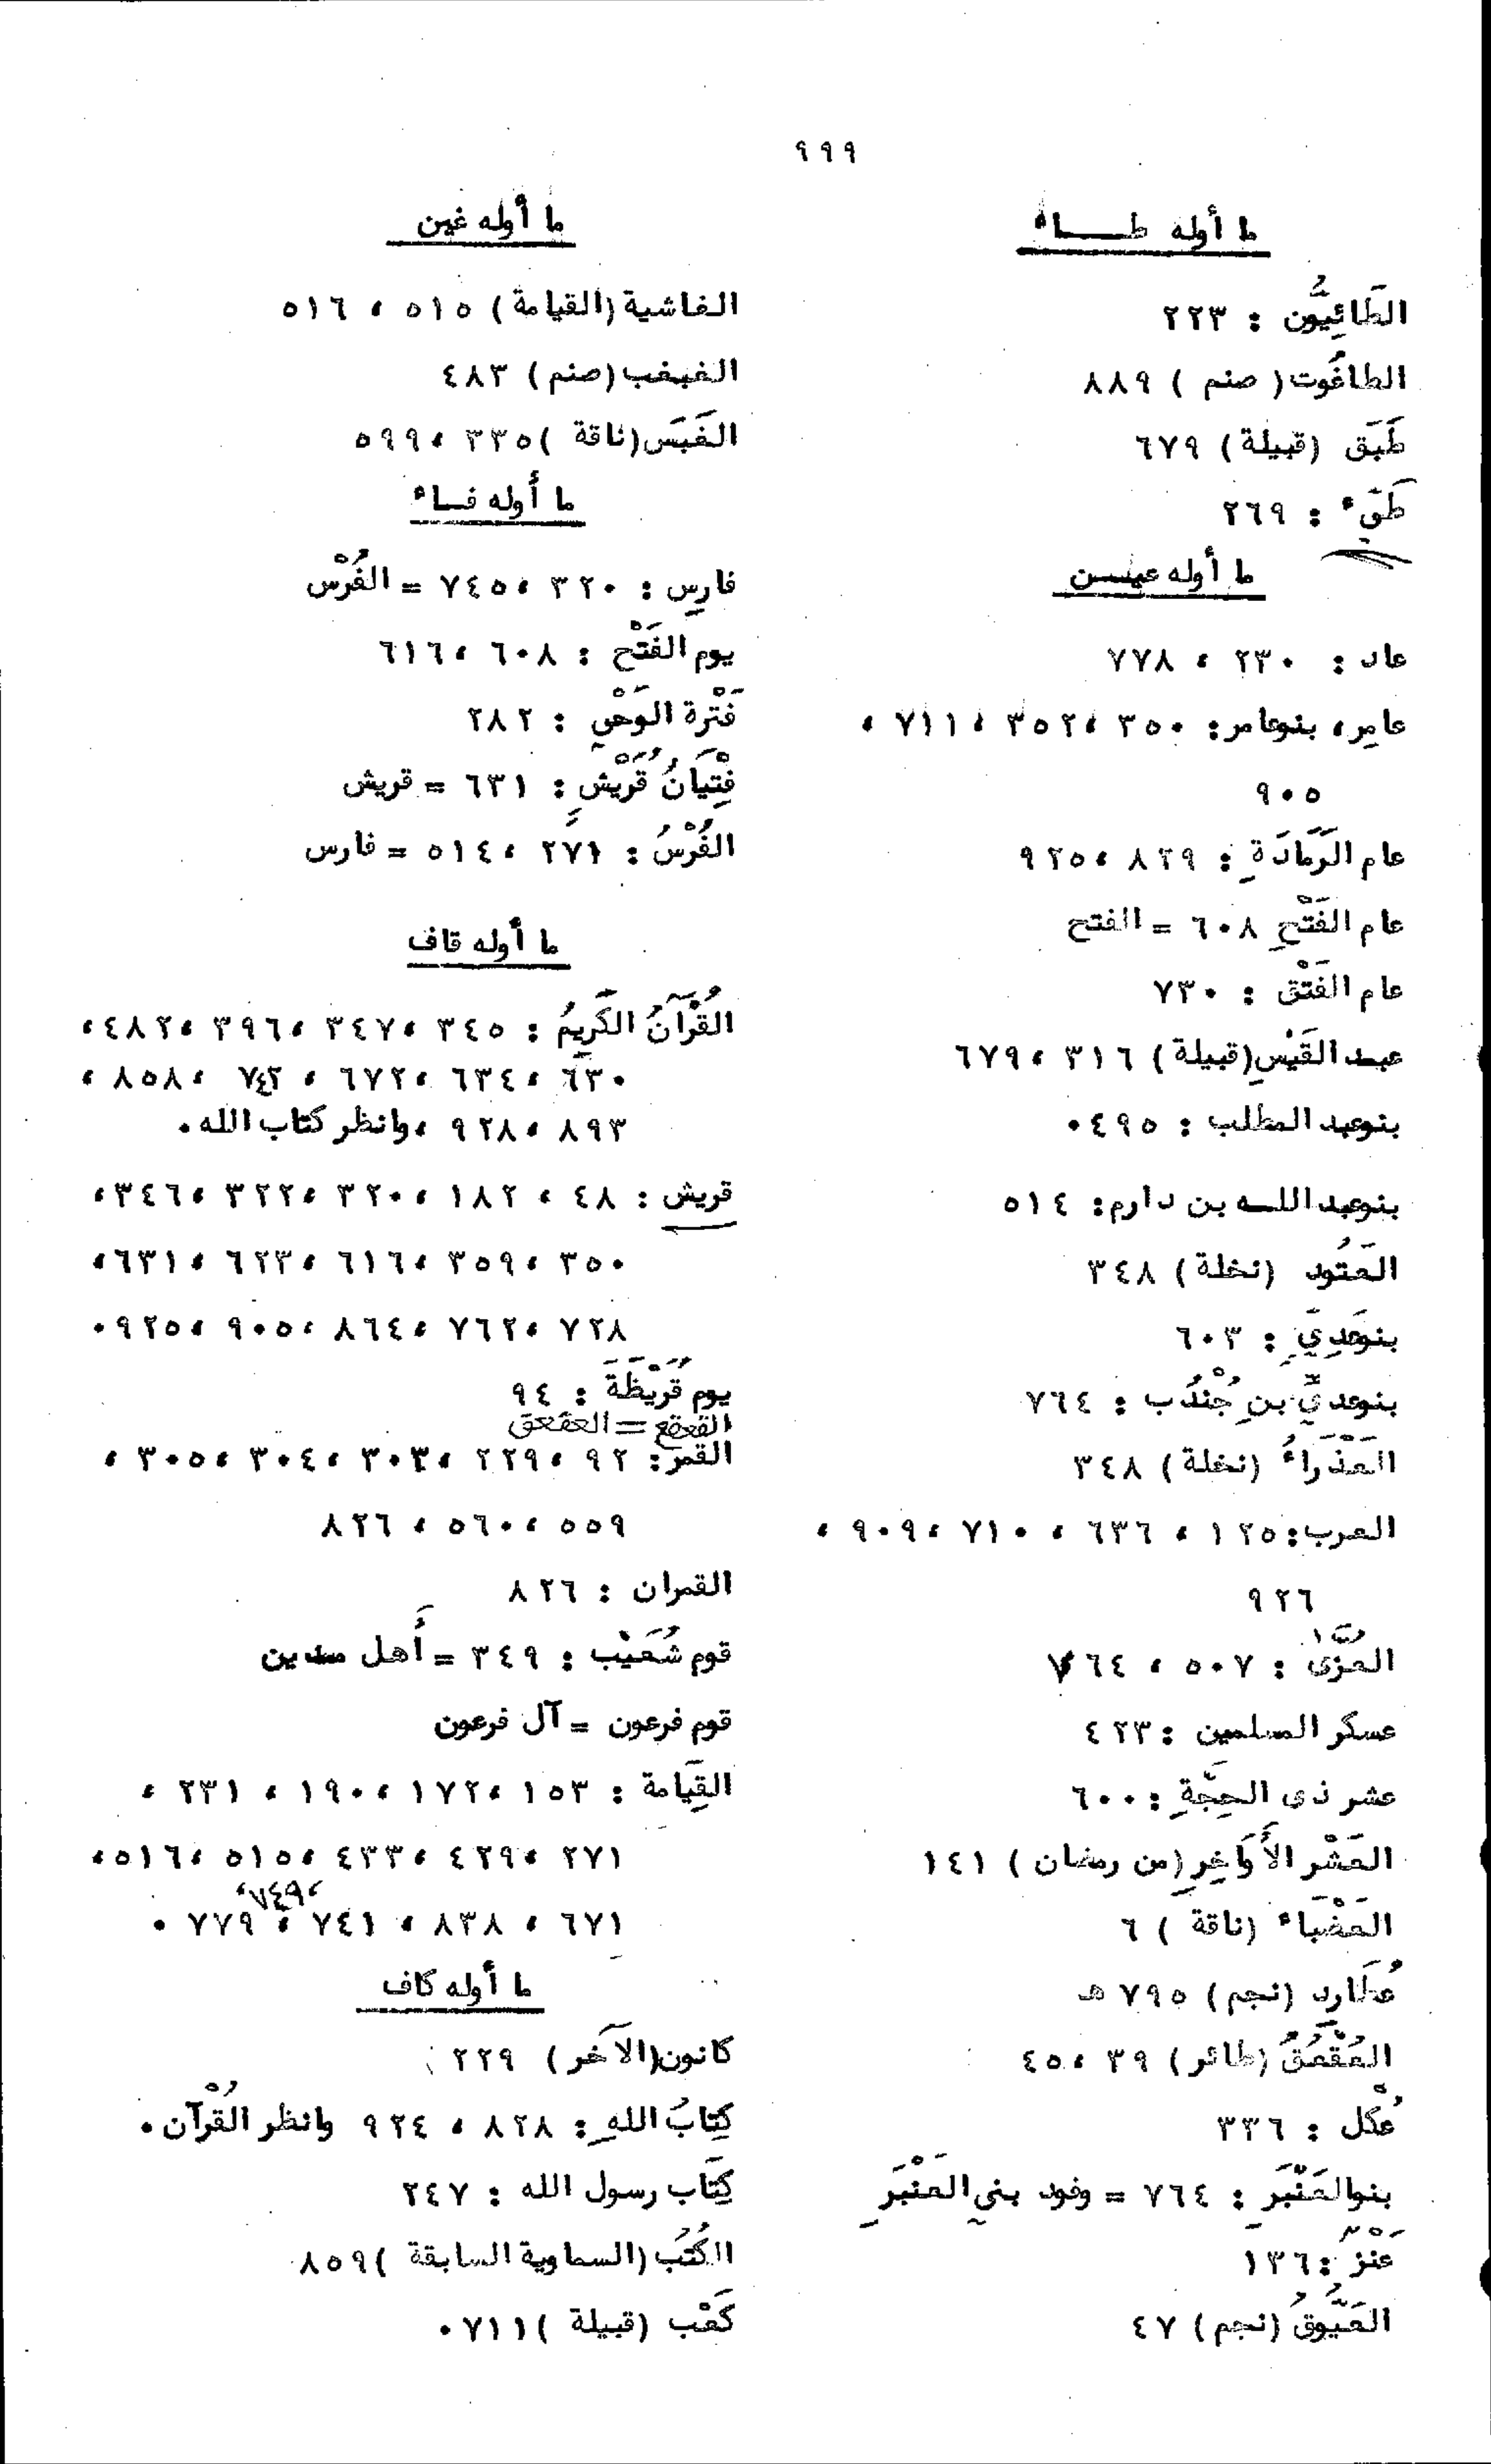 ٩٩٩
ما أوله طــاء
الطَائِيُّون : ٢٢٣
الطاغُوت( صنم ) ٨٨٩
طَبَق (قبيلة) ٦٧٩
طَيّء : ٢٦٩
ما أوله عيــن
عاد : ٢٣٠ ، ٧٧٨
عامِر، بنوعامر: ٣٥٠ ،٣٥٢ ،٧١١ ،
٩٠٥
عام الرَمَادَةِ : ٨٢٩ ،٩٢٥
عام الفَتْحِ ٦٠٨ = الفتح
عام الفَتْق : ٧٣٠
عبد القَيْسِ(قبيلة) ٣١٦ ،٦٧٩
بنوعبد المطلب : ٤٩٥٠
بنوعبد اللــه بن دارم: ٥١٤
العَتُود (نخلة) ٣٤٨
بنوعَدِيِّ : ٦٠٣
بنوعديّ بنِ جُنْدُب : ٧٦٤
العَذْرَاءُ (نخلة) ٣٤٨
العرب: ١٢٥ ، ٦٣٦ ، ٧١٠ ،٩٠٩ ،
٩٢٦
العزّى : ٥٠٧ ، ٧٦٤
عسكر المسلمين : ٤٢٣
عشر ذى الحِجَّةِ : ٦٠٠
العَشْر الأَوَاخِرِ (من رمضان) ١٤١
العَضْبَاء (ناقة ) ٦
عُطَارِد (نجم) ٧٩٥ هـ
العَقْعَقُ (طائر) ٣٩ ،٤٥
عُكْل : ٣٣٦
بنوالعَنْبَر : ٧٦٤ = وفود بني العَنْبَرِ
عَنْز : ١٣٦
العَيُّوقُ (نجم) ٤٧
ما أوله غين
الغاشية (القيامة) ٥١٥ ، ٥١٦
الغبغب (صنم) ٤٨٣
الغَبَس (ناقة ) ٣٣٥ ،٥٩٩
ما أوله فــاء
فارِس : ٣٢٠ ،٧٤٥ = الفُرْس
يوم الفَتْح : ٦٠٨ ،٦١٦
فَتْرة الوَحْي : ٢٨٢
فِتْيَانُ قُرَيْشٍ : ٦٣١ = قريش
الفُرْسُ : ٢٧١ ،٥١٤ = فارس
ما أوله قاف
القُرْآنُ الكَرِيمُ : ٣٤٥ ،٣٤٧ ،٣٩٦ ،٤٨٢،
٦٣٠ ،٦٣٤ ،٦٧٢ ، ٧٤٢ ،٨٥٨ ،
٨٩٣ ،٩٢٨ ،وانظر كتاب الله .
قريش : ٤٨ ، ١٨٢ ،٣٢٠ ،٣٢٢ ،٣٤٦،
٣٥٠ ،٣٥٩ ،٦١٦ ،٦٢٣ ،٦٣١،
٧٢٨ ،٧٦٢ ،٨٦٤ ،٩٠٥ ،٩٢٥٠
يوم قُرَيْظَةَ : ٩٤
القعقع = العقعق
القَمَر: ٩٢ ،٢٢٩ ،٣٠٣ ،٣٠٤ ،٣٠٥ ،
٥٥٩ ،٥٦٠ ، ٨٢٦
القمران : ٨٢٦
قوم شُعَيْب : ٣٤٩ = أَهل مدين
قوم فرعون = آل فرعون
القِيَامة : ١٥٣ ،١٧٢ ،١٩٠ ، ٢٣١ ،
٢٧١ ،٤٢٩ ،٤٣٣ ،٥١٥ ،٥١٦،
،٧٤٩،
٦٧١ ، ٨٣٨ ، ٧٤١ ، ٧٧٩ .
ما أوله كاف
كانون(الآخَر) ٢٢٩
كِتَابُ اللهِ : ٨٢٨ ، ٩٢٤ وانظر القُرْآن .
كِتَاب رسول الله : ٢٤٧
الكُتُب (السماوية السابقة )٨٥٩
كَعْب (قبيلة )٧١١ .